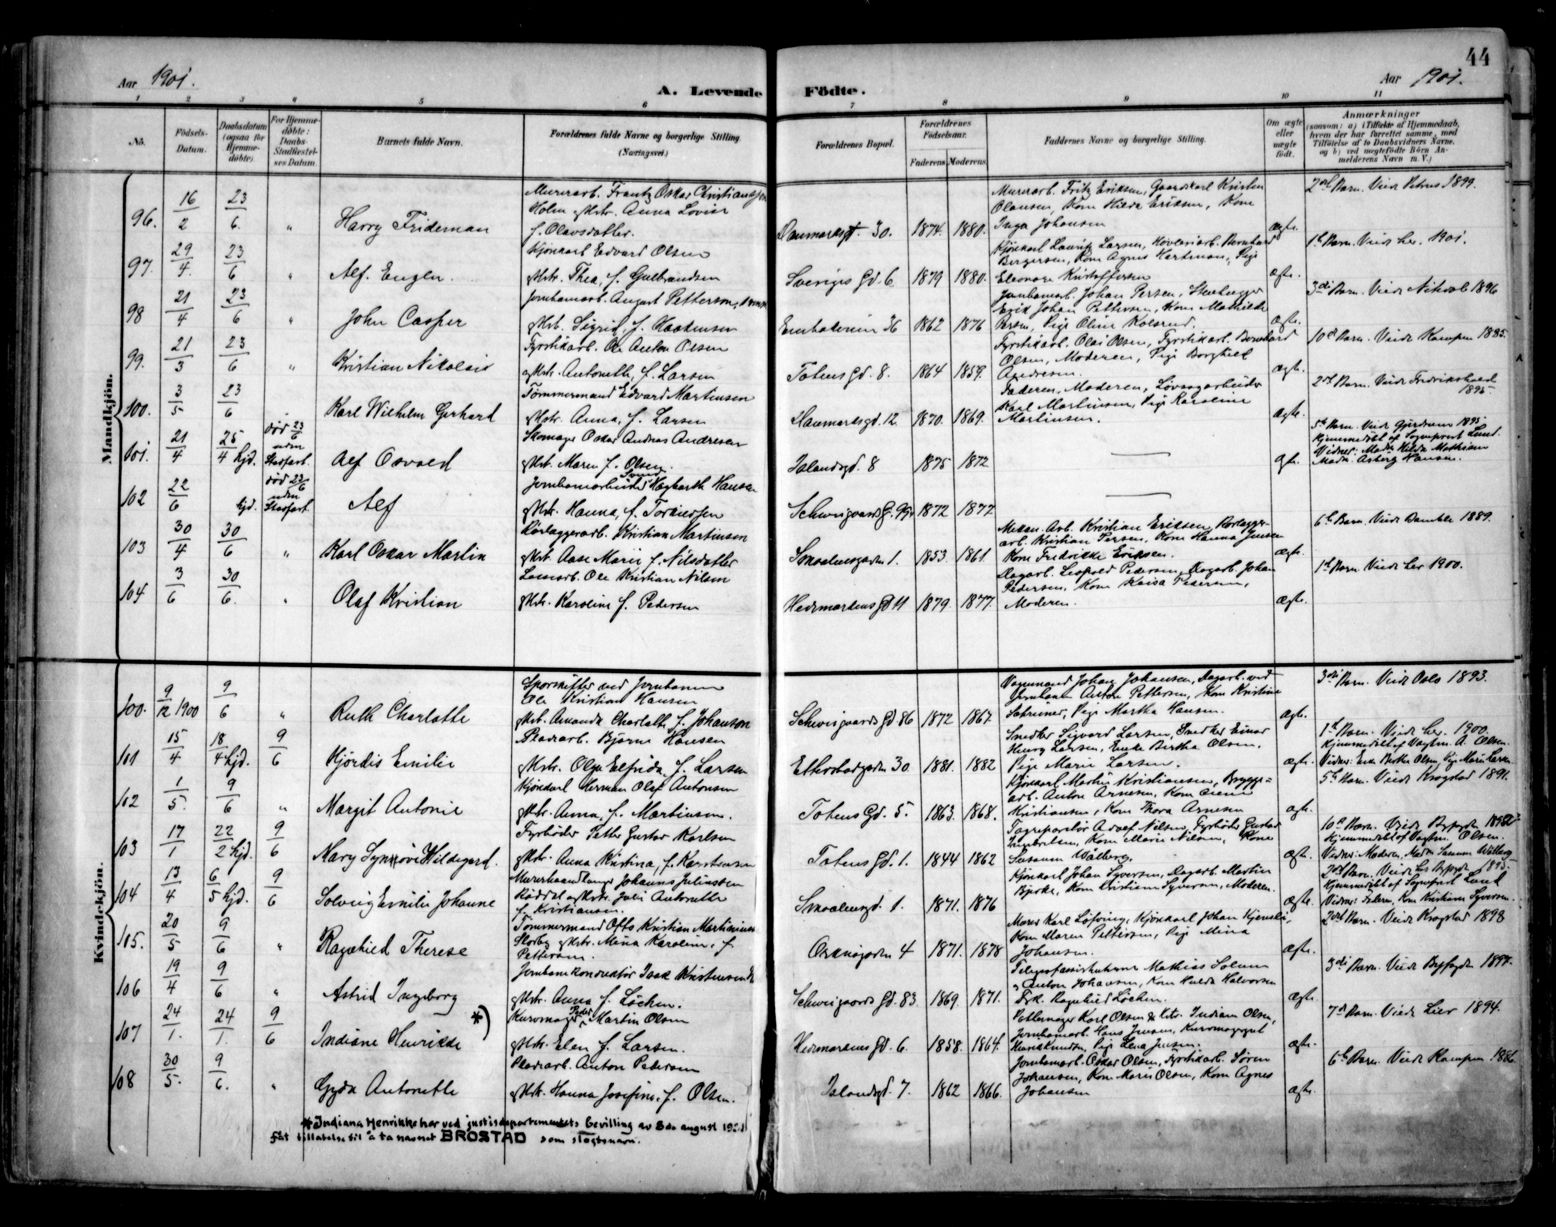 44
Aar 1901.
A. Levende Födte.
Aar 1901.
1 2 3 4 5 6 7 8 9 10 11
No.
Födsels-Datum.
Daabsdatum (ogsaa for Hjemme-döbte).
For Hjemme-döbte: Daabs-Stadfæstel-ses Datum.
Barnets fulde Navn.
Forældrenes fulde Navne og borgerlige Stilling. (Næringsvei.)
Forældrenes Bopæl.
Forældrenes Födselsaar. Faderens. Moderens.
Faddernes Navne og borgerlige Stilling.
Om ægte eller uægte födt.
Anmærkninger
Mandkjön.
96. 16/2 23/6 " Harry Frideman
Murerarb. Frantz Oskar Christiansen
Holm & Hstr. Anna Lovise
f. Olavsdatter.
Danmarksgt. 30. 1874. 1880.
Murerarb. Fritz Eriksen, Gaardskarl Kristen
Olausen, Kone Hilda Eriksen, Kone
Inga Johansen
ægte
2det Barn. Viede Petrus 1899.
97. 29/4. 23/6 " Alf. Eugen.
Kjørekarl Edvard Olsen
& Hstr. Thea f. Gulbrandsen
Sverigesgd. 6. 1879 1880.
Kjørekarl Lauritz Larsen, Høvleriarb. Bernhard
Bergersen, Kone Agnes Hartman, Pige
Eleonora Kristoffersen
ægte.
1ste Barn. Viede her. 1901.
98 21/4 23/6 " John Casper
Jernbanearb. August Petterson
& Hstr. Sigrid, f. Haakensen
Enebakveien 36 1862 1876
Jernbanearb. Johan Persen, Stenhugger
Erik Johan Petterson, Kone Mathilde
Persen, Pige Oline Kolsrud.
ægte
3die Barn. Viede Nitedal 1896
99. 21/3 23/6 " Kristian Nikolai
Fyrstikarb. Ole Anton Olsen
& Hstr. Antonette, f. Larsen
Totens Gd. 8. 1864 1859.
Fyrstikarb. Olai Olsen, Fyrstikarb. Bernhard
Olsen, Moderen, Pige Borghild
Andresen.
ægte.
10de Barn. Viede Kampen 1885.
100. 3/5 23/6 Karl Wilhelm Gerhard
Tömmermand Edvard Martinsen
& Hstr. Anna, f. Larsen
Danmarksgd. 12. 1870. 1869.
Faderen, Moderen, Løvsagarbeider
Karl Martinsen, Pige Karoline
Martinsen.
ægte.
2det Barn. Viede Fredrikshald
1895.
101. 21/4 25/4 hjd. död 23/6 uden Stadfæst. Alf Osvald
Skomager Oskar Andreas Andresen
& Hstr. Maren f. Olsen.
Islandsgd. 8 1875 1872
5te Barn. Viede Gjerdrum 1895
Hjemmedöbt af Sognepræst Lund.
102 22/6 hjd. död 23/6 uden Stadfæst. Alf
Jernbanearbeider Hagbarth Hansen
& Hstr. Hanna, f. Torkildsen
Schweigaardsg. 99 1872 1872
103 30/4 30/6 " Karl Oskar Martin
Rörlæggerarb. Kristian Martinsen
& Hstr. Aase Marie f. Nilsdatter
Smaalensgaden 1. 1853. 1861.
Mekan. Arb. Kristian Eriksen, Rørlægger-
arb. Kristian Persen, Kone Hanna Jensen
Kone Fredrikke Eriksen.
ægte
6te Barn. Viede Bamble 1889.
104 3/6 30/6. " Olaf Kristian
Ole Kristian Nilsen
& Hstr. Karoline f. Pedersen
Hedemarkens Gd. 11 1879. 1877.
Dagarb. Leopold Pedersen, Dagarb. Johan
Pedersen, Kone Kaisa Pedersen,
Moderen.
ægte.
1ste Barn. Viede her 1900.
Kvindekjön.
100. 9/12 1900 9/6 " Ruth Charlotte
Sporskifter ved Jernbanen
Ole Kristian Hansen
& Hstr. Amanda Charlotte f. Johanson
Schweigaards Gd 86 1872 1867.
Vognmand Johan Johansen, Dagarb. ved
Jernbanen Anton Pettersen, Kone Kristine
Schreiner, Pige Martha Hansen.
ægte.
3die Barn. Viede Oslo 1893.
101 15/4 18/4 hjd. 9/6 Hjördis Emilie
Pladsarb. Bjarne Hansen
& Hstr. Olga Elfrida, f. Larsen
Etterstadgaden 30 1881. 1882
Snedker Sigvard Larsen, Snedker Einar
Henry Larsen, Enke Birtha Olsen,
Pige Marie Larsen.
ægte.
1ste Barn. Viede her 1900.
Hjemmedöbt af Vagtm. A. Olsen.
Vidner: Enke Birtha Olsen, Pige Marie Larsen
102 1/5. 9/6 " Margit Antonie
Kjørekarl Herman Olaf Antonsen
& Hstr. Anna, f. Martinsen.
Totens Gd. 5. 1863. 1868.
Kjørekarl Martin Kristiansen, Brygge-
arb. Anton Arnesen, Kone
Kristiansen, Kone Thora Arnesen
ægte.
5te Barn. Viede Krogstad 1891.
103 17/1 22/2 hjd. 9/6 Mary Synnöve Hildegard.
Fyrböder Petter Gustav Karlsen
& Hstr. Anna Kristina, f. Karstensen
Totens Gd. 1. 1844 1862
Adolf Nilsen, Fyrböder Gustav
Ingebretsen, Kone Marie Nilsen, Kone
Susanna Wålberg.
ægte.
10de Barn. Viede Bygfogden
Hjemmedöbt af Vagtm. Olsen.
Vidner: Moderen, Madm Susanna Wålberg
104 13/4 6/5 hjd. 9/6 Solveig Emilie Johanne
Murerhaandlanger Johannes Juliussen
Röddal & Hstr. Julie Antonette
f. Kristiansen.
Smaalensgd. 1. 1871. 1876
Kjørekarl Johan Syversen, Dagarb. Martin
Bjerke, Kone Kristiane Syversen, Moderen.
ægte.
2det Barn. Viede hos Bygfogd. 1895.
Hjemmedöbt af Sognepræst Lund
Vidner: Faderen, Kone Kristiane Syversen.
105. 20/5 9/6 " Ragnhild Therese
Tömmermand Otto Kristian Martinius
Skorby & Hstr. Mina Karoline, f.
Pettersen.
Orknögaden 4 1871. 1878
Murer Karl Löfving, Kjørekarl Johan Hjemsli,
Kone Maren Pettersen, Pige Mina
Johansen.
ægte.
2det Barn. Viede Krogstad 1898
106 19/4 9/6 " Astrid Ingeborg
Jernbanekonduktör Isak Kristiansen
& Hstr. Anna f. Löchen.
Schweigaards Gd. 83. 1869. 1871.
Telegrafassistenterne Mathias Solum
og Anton Johansen, Kone Hulda Halvorsen
Frk. Ragnhild Löchen.
ægte
3die Barn. Viede Bygfogden 1897.
107 24/1. 24/1. 9/6 Indiane Henrikke *)
Kurvmager Peder Martin Olsen
& Hstr. Elen f. Larsen.
Hedemarkens Gd. 6. 1858. 1864.
Pottemager Karl Olsen & Hstr. Indiane Olsen,
Jernbanearb. Hans Jensen, Kurvmagerpige
Pige Lena Jensen.
ægte.
7de Barn. Viede Lier 1894.
108 30/5. 9/6. " Gyda Antonette
Pladsarb. Anton Petersen
& Hstr. Hanna Josefine, f. Olsen.
Islandsgd. 7. 1862 1866.
Jernbanearb. Oskar Olsen, Fyrstikarb. Sören
Johansen, Kone Marie Olsen, Kone Agnes
Johansen
ægte
6te Barn. Viede Kampen 1886.
* Indiana Henrikke har ved justisdepartementets bevilling av 8de august 1921
fåt tillatelse til å ta navnet BROSTAD som slegtsnavn.